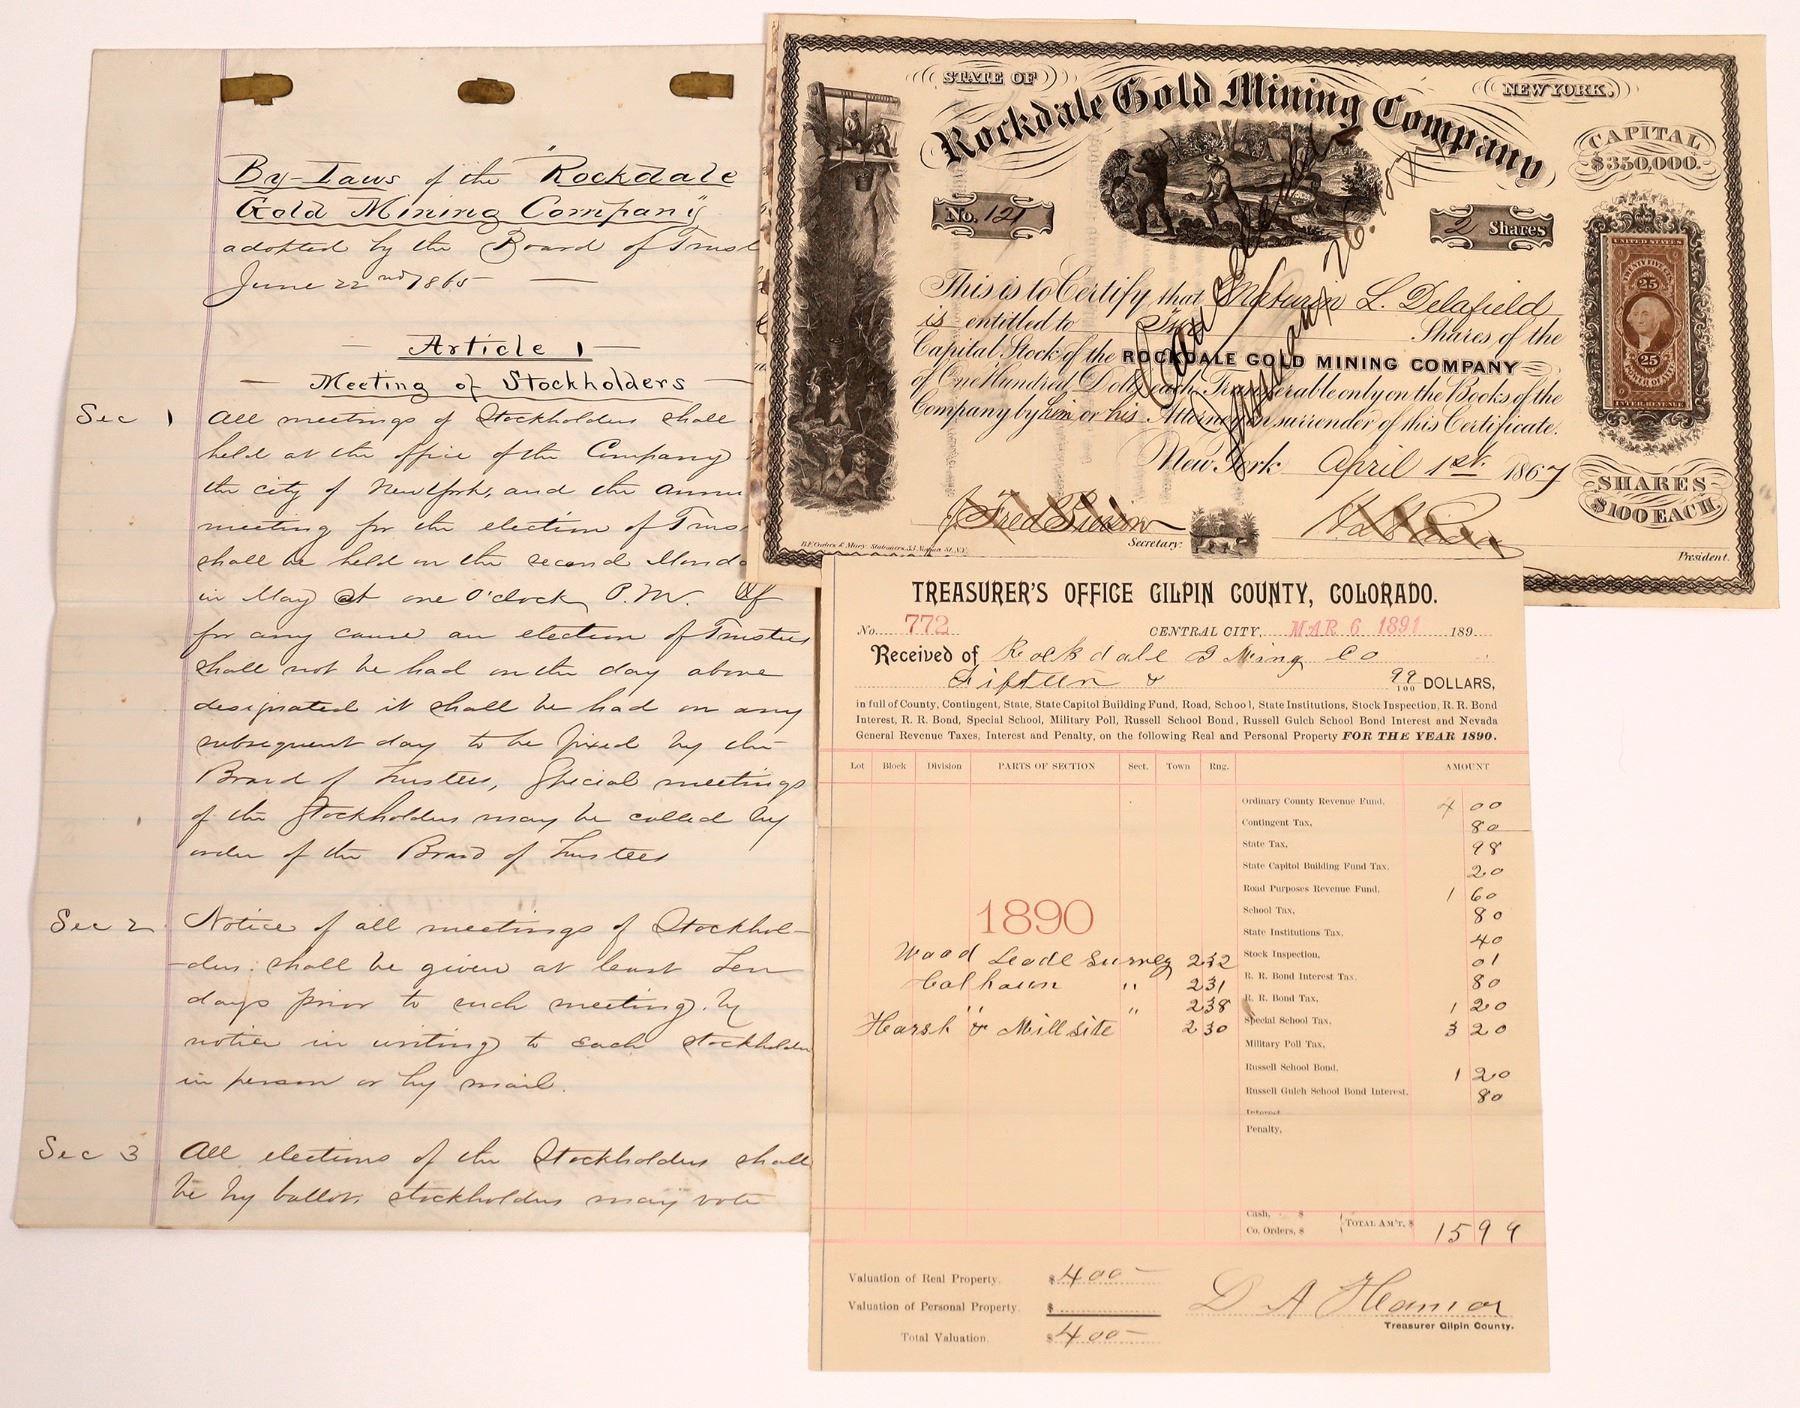 By-Laws of the "Rockdale
Gold Mining Company"
adopted by the Board of Trust
June 22nd 1865
Article 1
Meeting of Stockholders
Sec 1 All meetings of Stockholders shall
held at the office of the Company
the city of New York, and the annu
meeting for the election of Trus
shall be held on the second Monda
in May at one O'clock P.M. If
for any cause an election of Trustees
shall not be had on the day above
designated it shall be had on any
subsequent day to be fixed by the
Board of Trustees, Special meetings
of the Stockholders may be called by
order of the Board of Trustees
Sec 2 Notice of all meetings of Stockhol-
-ders shall be given at least Ten
days prior to such meeting by
notice in writing to each stockholder
in person or by mail.
Sec 3 All elections of the Stockholders shall
be by ballot, stockholders may vote
STATE OF NEW YORK.
Rockdale Gold Mining Company
CAPITAL
$350,000.
No. 121
2 Shares
UNITED STATES
25
25
INTER. REVENUE
This is to Certify that Maturin L. Delafield
is entitled to Two Shares of the
Capital Stock of the ROCKDALE GOLD MINING COMPANY
of One Hundred Dolls. each Transferable only on the Books of the
Company by him or his Attorney on surrender of this Certificate.
New York April 1st. 1867
Cancelled
SHARES
$100 EACH
Secretary.
President.
TREASURER'S OFFICE GILPIN COUNTY, COLORADO.
No. 772 CENTRAL CITY, MAR 6 1891 189
Received of Rockdale G Ming Co
Fifteen & 99/100 DOLLARS,
in full of County, Contingent, State, State Capitol Building Fund, Road, School, State Institutions, Stock Inspection, R. R. Bond
Interest, R. R. Bond, Special School, Military Poll, Russell School Bond, Russell Gulch School Bond Interest and Nevada
General Revenue Taxes, Interest and Penalty, on the following Real and Personal Property FOR THE YEAR 1890.
Lot Block Division PARTS OF SECTION Sect. Town Rng. AMOUNT
Ordinary County Revenue Fund, 4 00
Contingent Tax, 80
State Tax, 98
State Capitol Building Fund Tax, 20
Road Purposes Revenue Fund, 1 60
School Tax, 80
State Institutions Tax, 40
Stock Inspection, 01
R. R. Bond Interest Tax, 80
R. R. Bond Tax, 1 20
Special School Tax, 3 20
Military Poll Tax,
Russell School Bond, 1 20
Russell Gulch School Bond Interest, 80
Interest
Penalty,
1890
Wood Leade Survey 232
Calhoun " 231
" " 238
Harsh & Mill site 230
Cash, $
Co. Orders, $
TOTAL AM'T, $ 15 99
Valuation of Real Property, $ 400-
Valuation of Personal Property, $
Total Valuation. $ 400-
Treasurer Gilpin County.